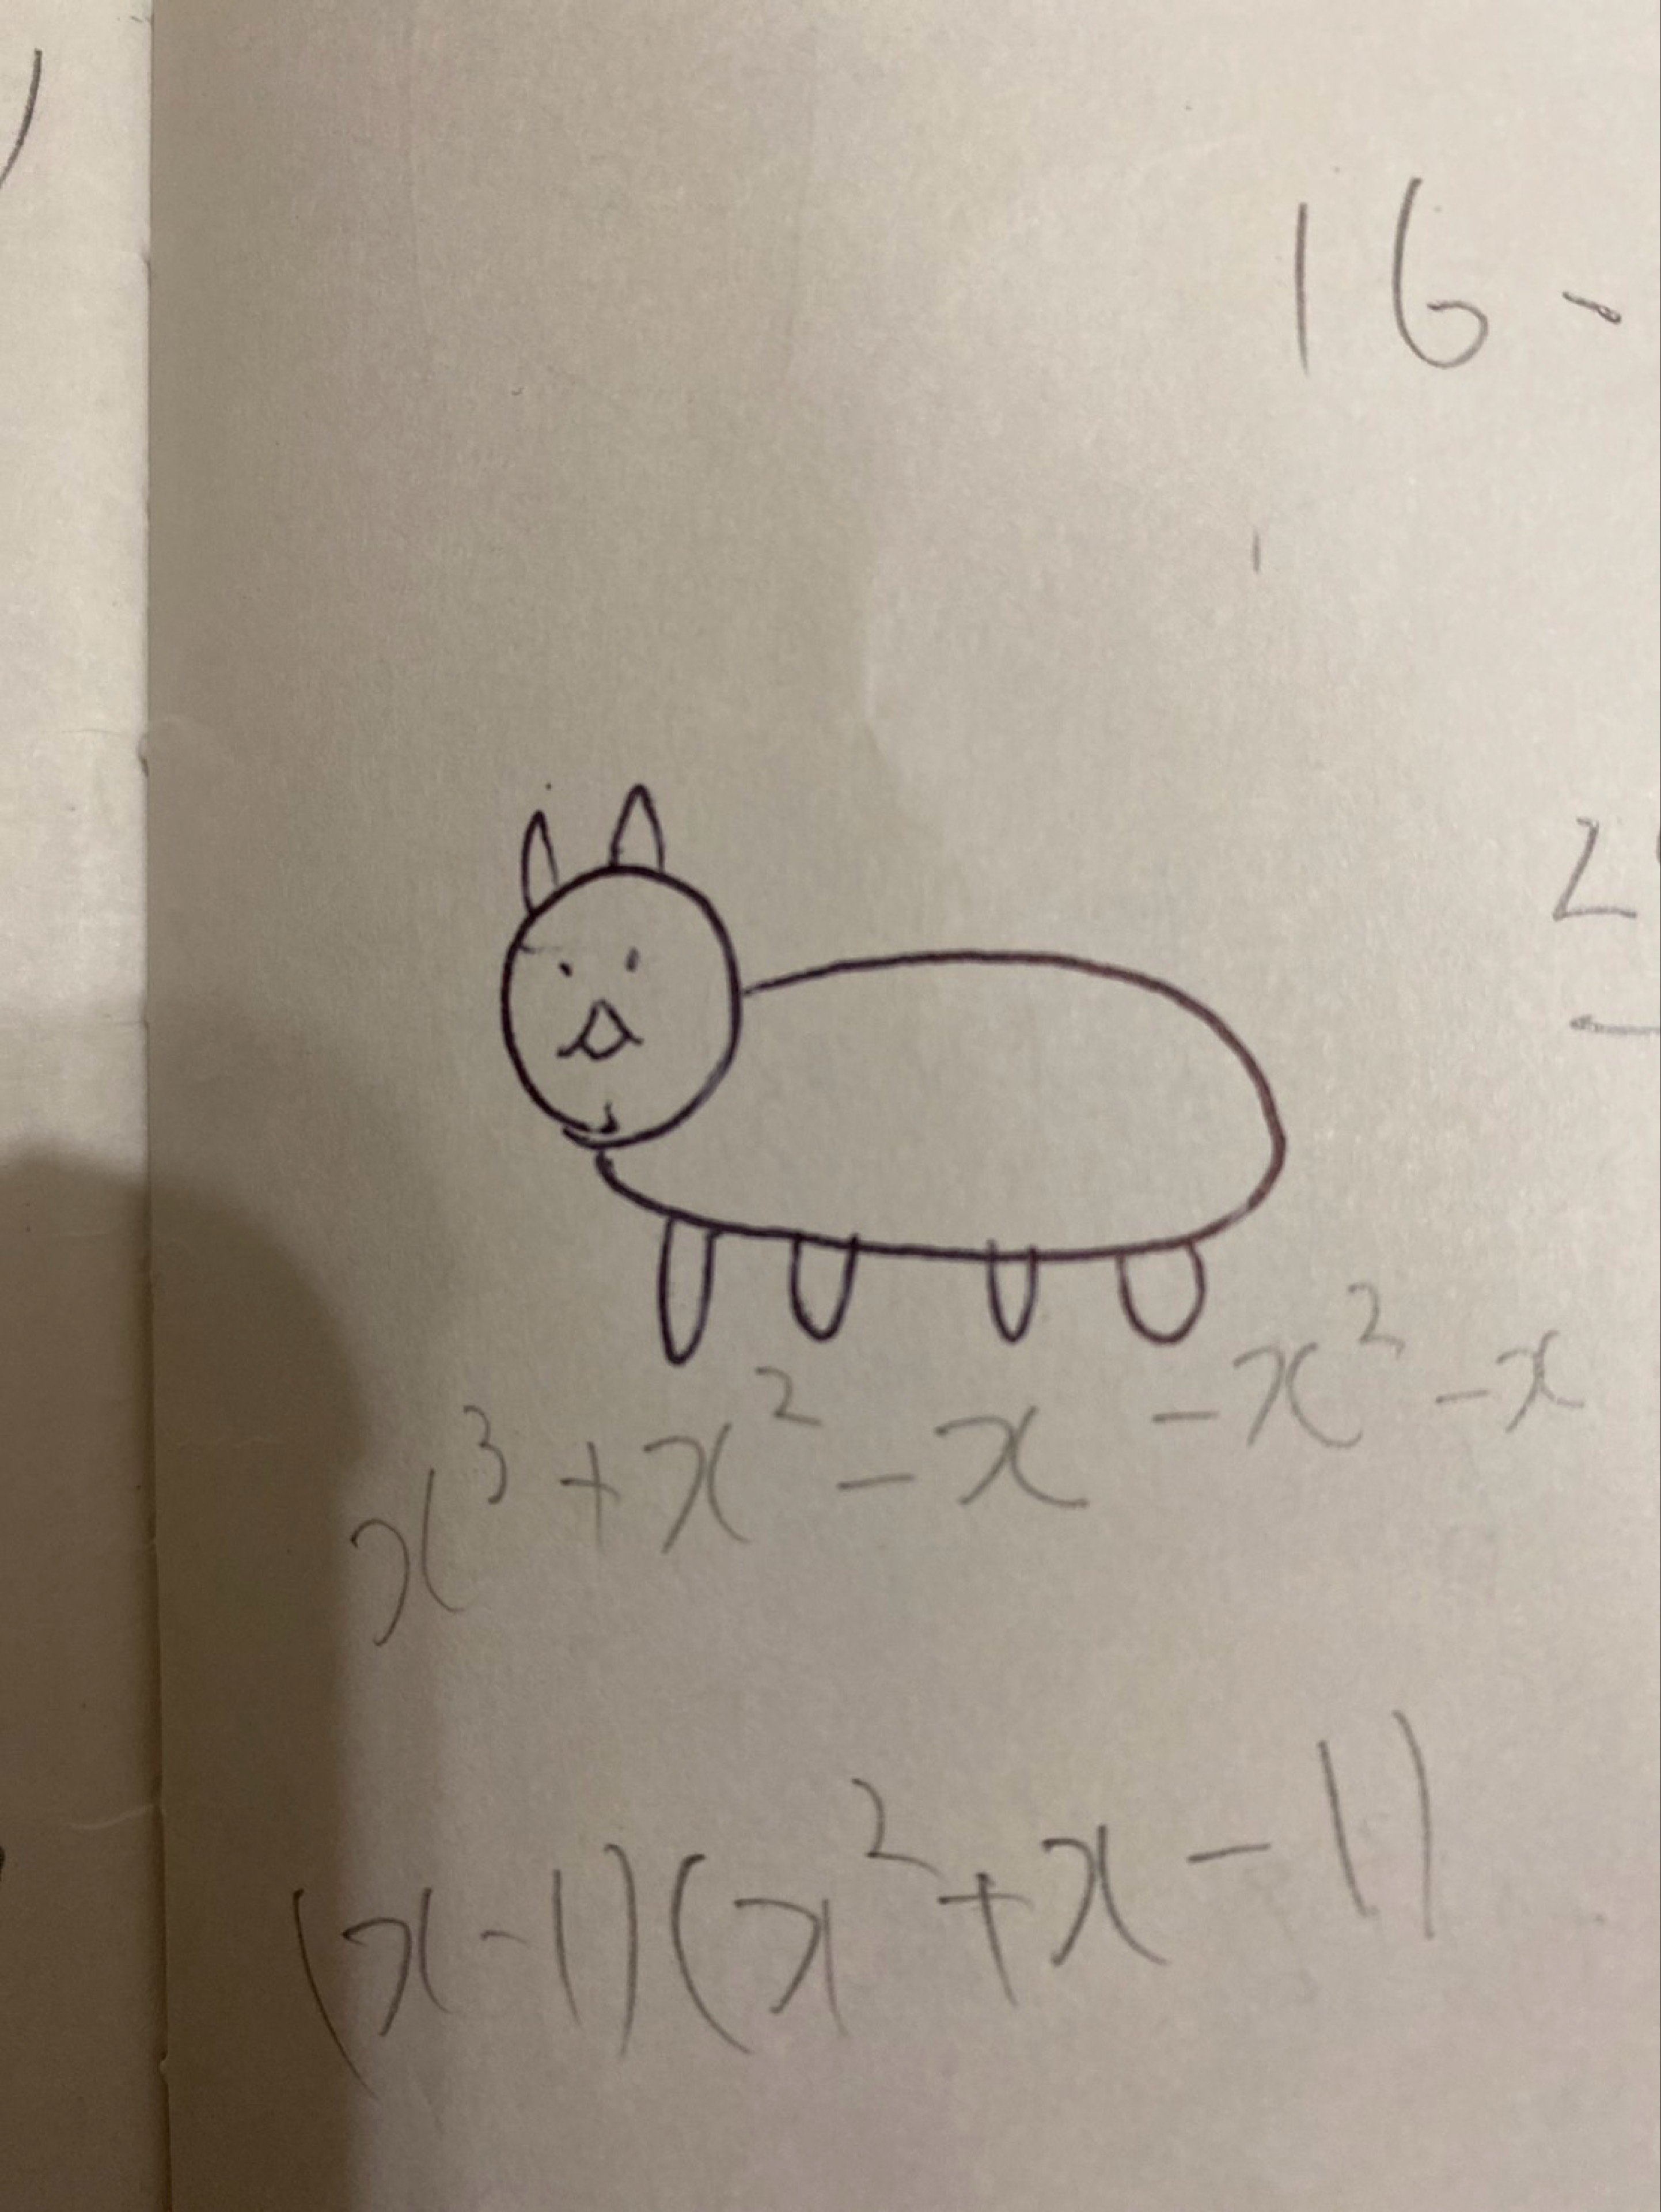 16-
x³+x²-x-x²-x
(x-1)(x²+x-1)